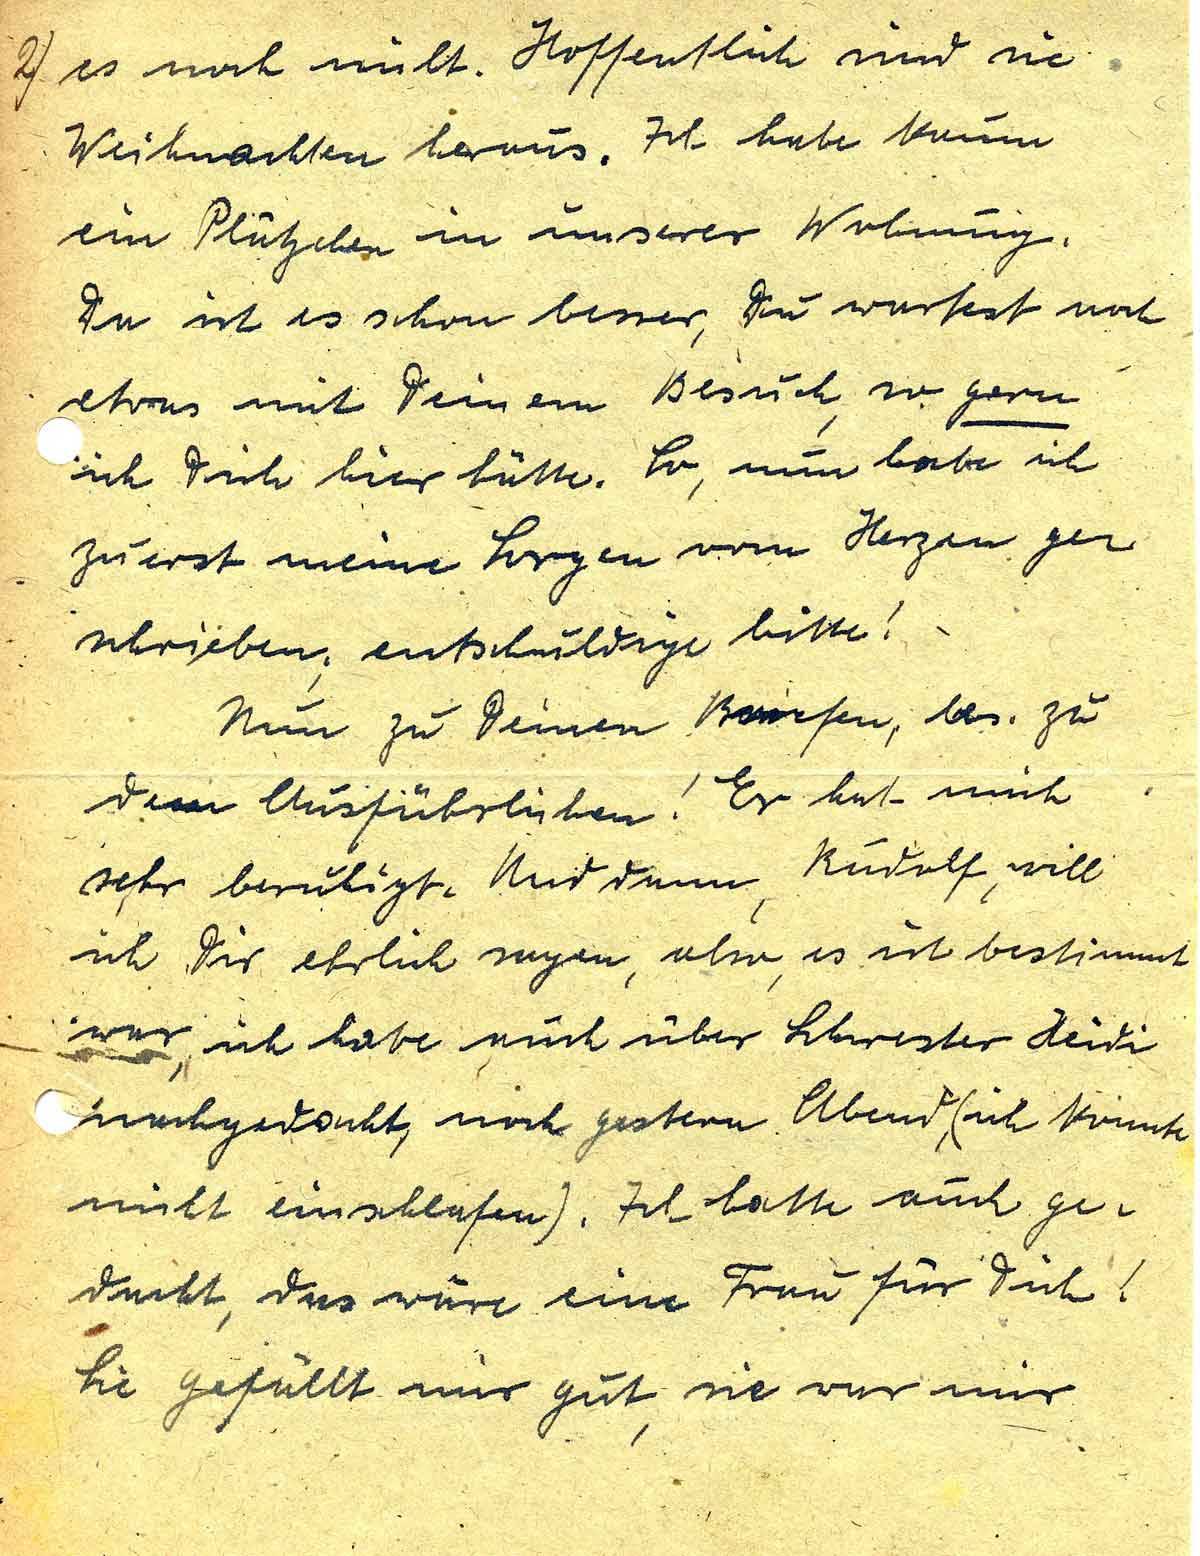 2) es noch nicht. Hoffentlich sind sie
Weihnachten heraus. Ich habe kaum
ein Plätzchen in unserer Wohnung.
Da ist es schon besser, Du wartest noch
etwas mit Deinem Besuch, so gern
ich Dich hier hätte. So, nun habe ich
zuerst meine Sorgen vom Herzen ge-
schrieben, entschuldige bitte!
Nun zu Deinen Briefen, bes. zu
dem Ausführlichen! Er hat mich
sehr beruhigt. Und dann, Rudolf, will
ich Dir ehrlich sagen, also, es ist bestimmt
war, ich habe auch über Schwester Heidi
nachgedacht, noch gestern Abend, (ich konnte
nicht einschlafen). Ich hatte auch ge-
dacht, das wäre eine Frau für Dich!
Sie gefällt mir gut, sie war mir